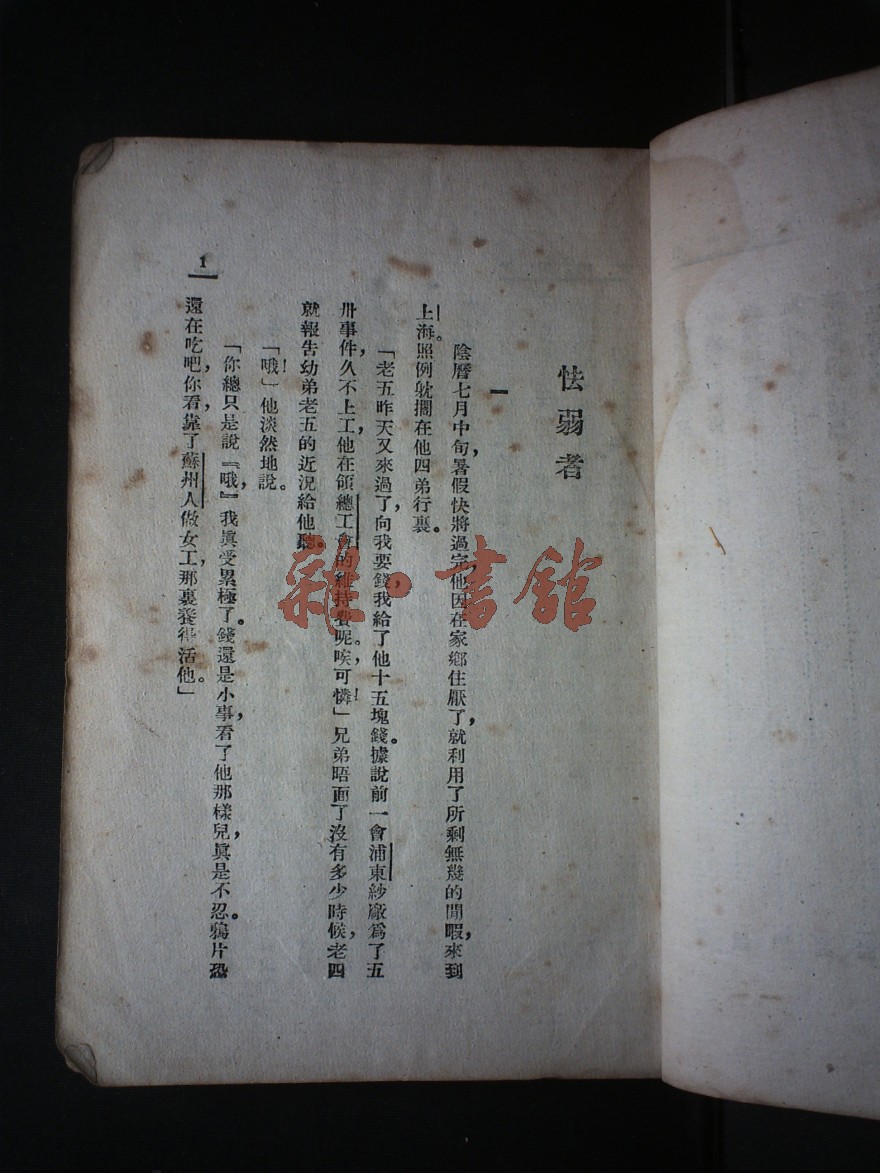 怯弱者
一
陰曆七月中旬，暑假快將過完，他因在家鄉住厭了，就利用了所剩無幾的閒暇，來到
上海。照例躭擱在他四弟行裏。
「老五昨天又來過了，向我要錢，我給了他十五塊錢。據說前一會浦東紗廠爲了五
卅事件，久不上工，他在領總工會的維持費呢。唉，可憐！」兄弟晤面了沒有多少時候，老四
就報告幼弟老五的近況給他聽。
「哦！」他淡然地說。
「你總只是說『哦』，我眞受累極了。錢還是小事，看了他那樣兒，眞是不忍。鴉片恐
還在吃吧，你看，靠了蘇州人做女工，那裏養得活他。」
1
雜·書館